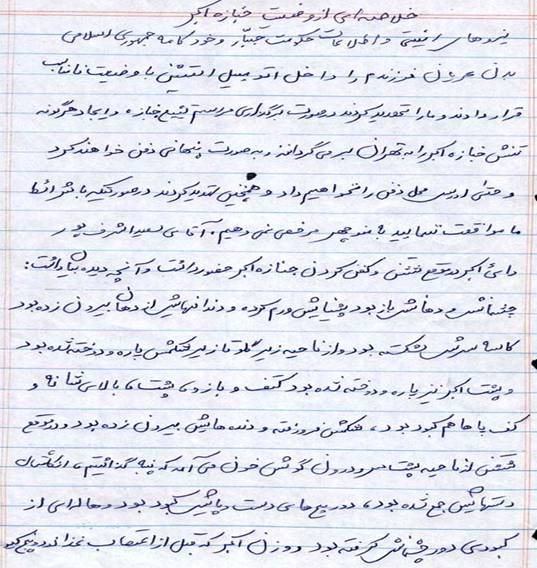 خلاصه‌ای از وضعیت جنازه اکبر
نیروهای امنیتی و اطلاعات حکومت جبّار و خودکامه جمهوری اسلامی
بدن عریان فرزندم را داخل اتومبیل آتش‌نشینی با وضعیت نامناسب
قرار دادند و ما را تهدید کردند در صورت برگزاری مراسم تشییع جنازه و ایجاد هرگونه
تنش جنازه اکبر را به تهران بر می‌گردانند و به صورت پنهانی دفن خواهند کرد
و حتی آدرس محل دفن را نخواهیم داد و همچنین تهدید کردند در صورتیکه با شرائط
ما موافقت ننمایید به منوچهر مرخصی نمی دهیم. آقای سعید اشرف پور
دائی اکبر در موقع شستن و کفن کردن جنازه اکبر حضور داشت و آنچه دیده بیان داشت:
چشمانش و دهانش باز بود بینیایش ورم کرده و دندانهایش از دهان بیرون زده بود
کاسه سرش شکسته بود و از ناحیه زیر گلو تا زیر شکمش پاره و دوخته شده بود
و پشت اکبر نیز پاره و دوخته شده بود کتف و بازو، پشت، بالای شانه و
کف پاها هم کبود بود، شکمش فرو رفته و دنده هایش بیرون زده بود و در موقع
شستن از ناحیه پشت سر و درون گوشش خون می آمد که پنبه گذاشتیم، انگشتان
دستهایش جمع شده بود، دور مچ‌های دست و پایش کبود بود و هاله‌ای از
کبودی دور چشمانش گرفته بود و وزن اکبر که قبل از اعتصاب غذا نود و پنج کیلو